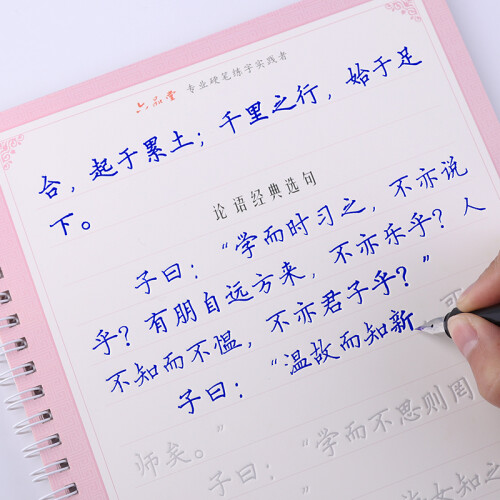 六品堂 专业硬笔练字实践者
台，起于累土；千里之行，始于足
下。
论语经典选句
子曰：“学而时习之，不亦说
乎？有朋自远方来，不亦乐乎？人
不知而不愠，不亦君子乎？”
子曰：“温故而知新 可
师矣。”
子曰：“学而不思则罔
女知之